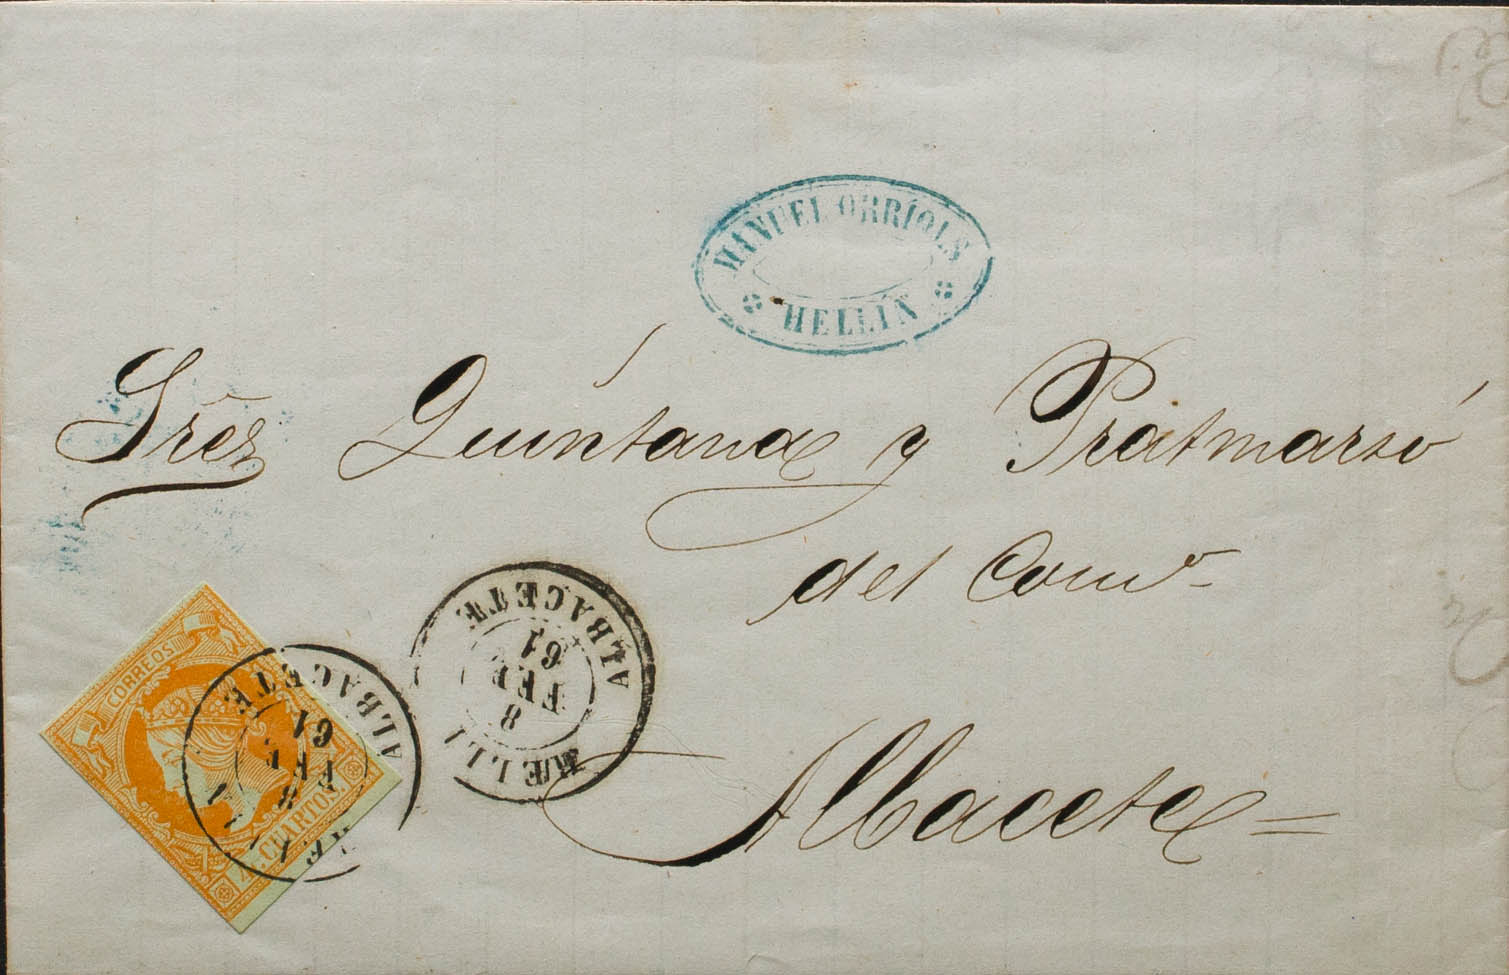 MANUEL ORRÍOLS
HELLÍN
Sres Quintana y Pratmarsó
del Comº
Albacete =
ALBACETE
8
FEB
61
HELLIN
ALBACETE
8
FEB
61
CORREOS
4 CUARTOS.